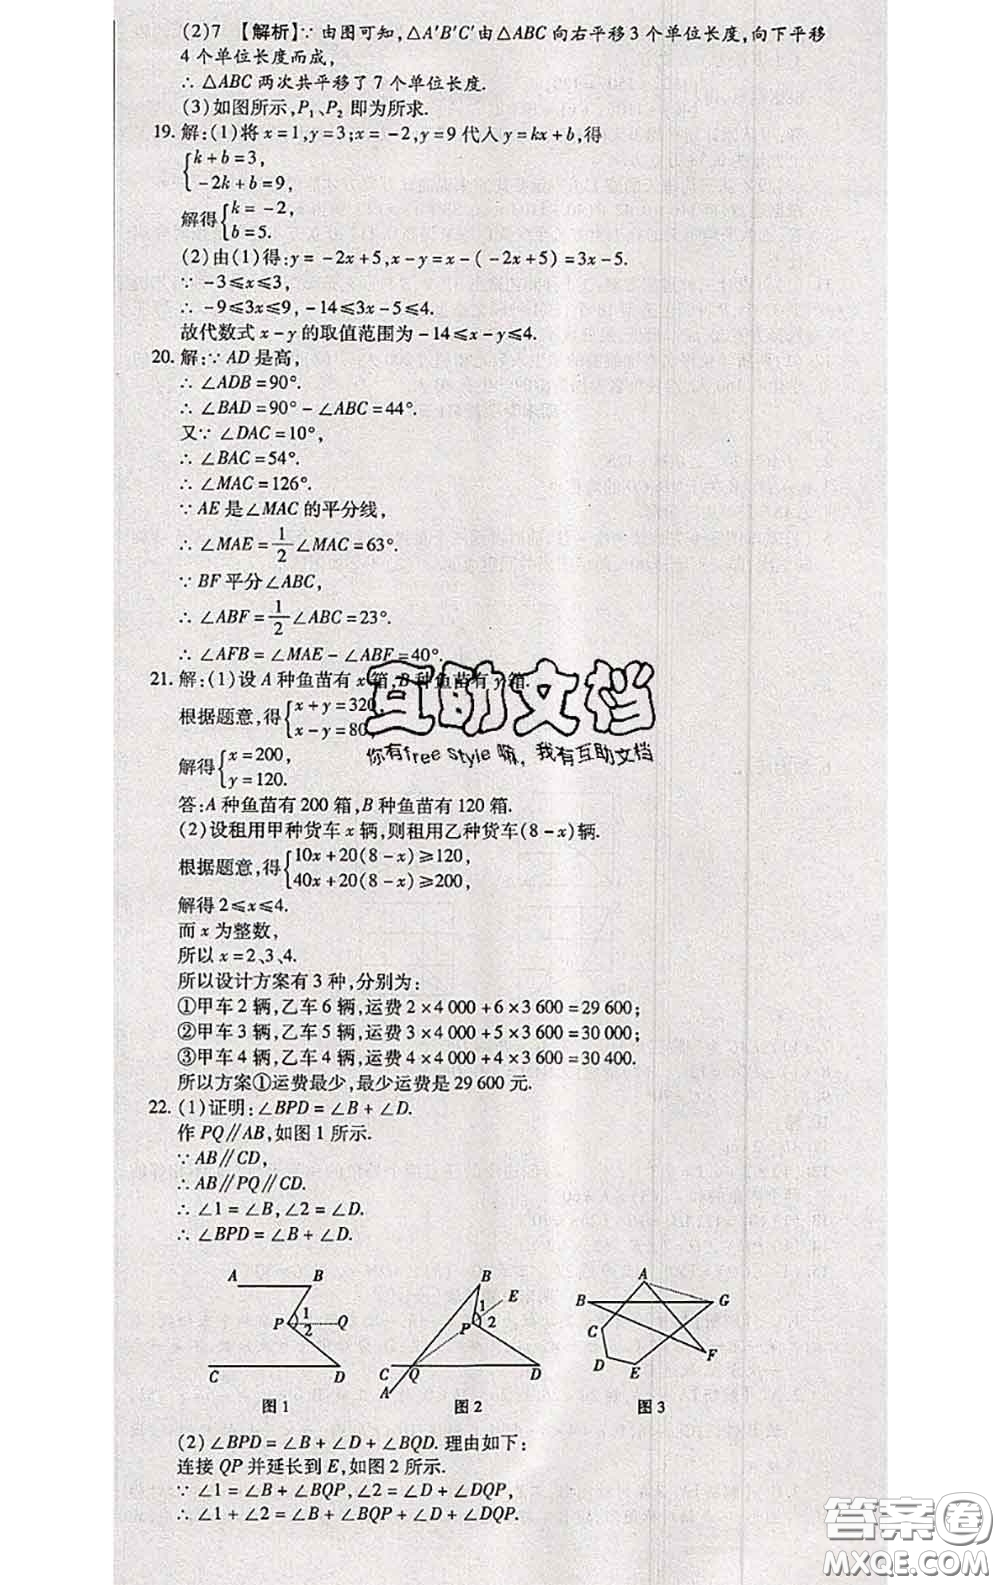 (2)7 【解析】∵ 由图可知,△A′B′C′由△ABC 向右平移 3 个单位长度,向下平移
4 个单位长度而成,
∴ △ABC 两次共平移了 7 个单位长度.
(3)如图所示,P₁、P₂ 即为所求.
19. 解:(1)将 x=1,y=3;x=-2,y=9 代入 y=kx+b,得
k+b=3,
-2k+b=9,
解得
k=-2,
b=5.
(2)由(1)得:y=-2x+5,x-y=x-(-2x+5)=3x-5.
∵ -3≤x≤3,
∴ -9≤3x≤9,-14≤3x-5≤4.
故代数式 x-y 的取值范围为 -14≤x-y≤4.
20. 解:∵ AD 是高,
∴ ∠ADB=90°.
∴ ∠BAD=90°-∠ABC=44°.
又∵ ∠DAC=10°,
∴ ∠BAC=54°.
∴ ∠MAC=126°.
∵ AE 是∠MAC 的平分线,
∴ ∠MAE=1/2∠MAC=63°.
∵ BF 平分∠ABC,
∴ ∠ABF=1/2∠ABC=23°.
∴ ∠AFB=∠MAE-∠ABF=40°.
21. 解:(1)设 A 种鱼苗有 x 箱,B 种鱼苗有 y 箱.
根据题意,得
x+y=320,
x-y=80,
互助文档
你有free style 嘛,我有互助文档
解得
x=200,
y=120.
答:A 种鱼苗有 200 箱,B 种鱼苗有 120 箱.
(2)设租用甲种货车 x 辆,则租用乙种货车(8-x)辆.
根据题意,得
10x+20(8-x)≥120,
40x+20(8-x)≥200,
解得 2≤x≤4.
而 x 为整数,
所以 x=2、3、4.
所以设计方案有 3 种,分别为:
①甲车 2 辆,乙车 6 辆,运费 2×4 000+6×3 600=29 600;
②甲车 3 辆,乙车 5 辆,运费 3×4 000+5×3 600=30 000;
③甲车 4 辆,乙车 4 辆,运费 4×4 000+4×3 600=30 400.
所以方案①运费最少,最少运费是 29 600 元.
22. (1)证明:∠BPD=∠B+∠D.
作 PQ∥AB,如图 1 所示.
∵ AB∥CD,
∴ AB∥PQ∥CD.
∴ ∠1=∠B,∠2=∠D.
∴ ∠BPD=∠B+∠D.
A B P 1 2 Q C D
图 1
B 1 E P 2 C Q D A
图 2
A B G C D E F
图 3
(2)∠BPD=∠B+∠D+∠BQD. 理由如下:
连接 QP 并延长到 E,如图 2 所示.
∵ ∠1=∠B+∠BQP,∠2=∠D+∠DQP,
∴ ∠1+∠2=∠B+∠BQP+∠D+∠DQP.
答案圈
MXQE.COM